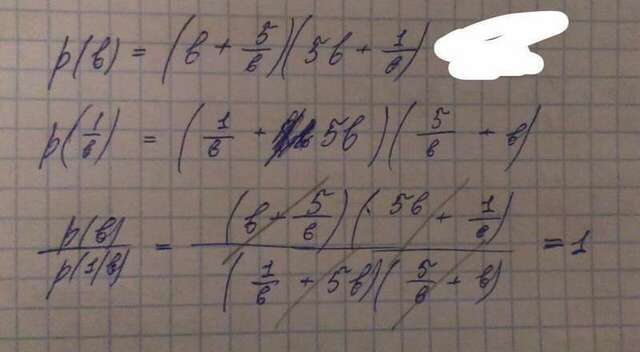 p(b) = (b + 5/b)(5b + 1/b)
p(1/b) = (1/b + 5b)(5/b + b)
p(b)/p(1/b) = (b + 5/b)(5b + 1/b)/(1/b + 5b)(5/b + b) = 1